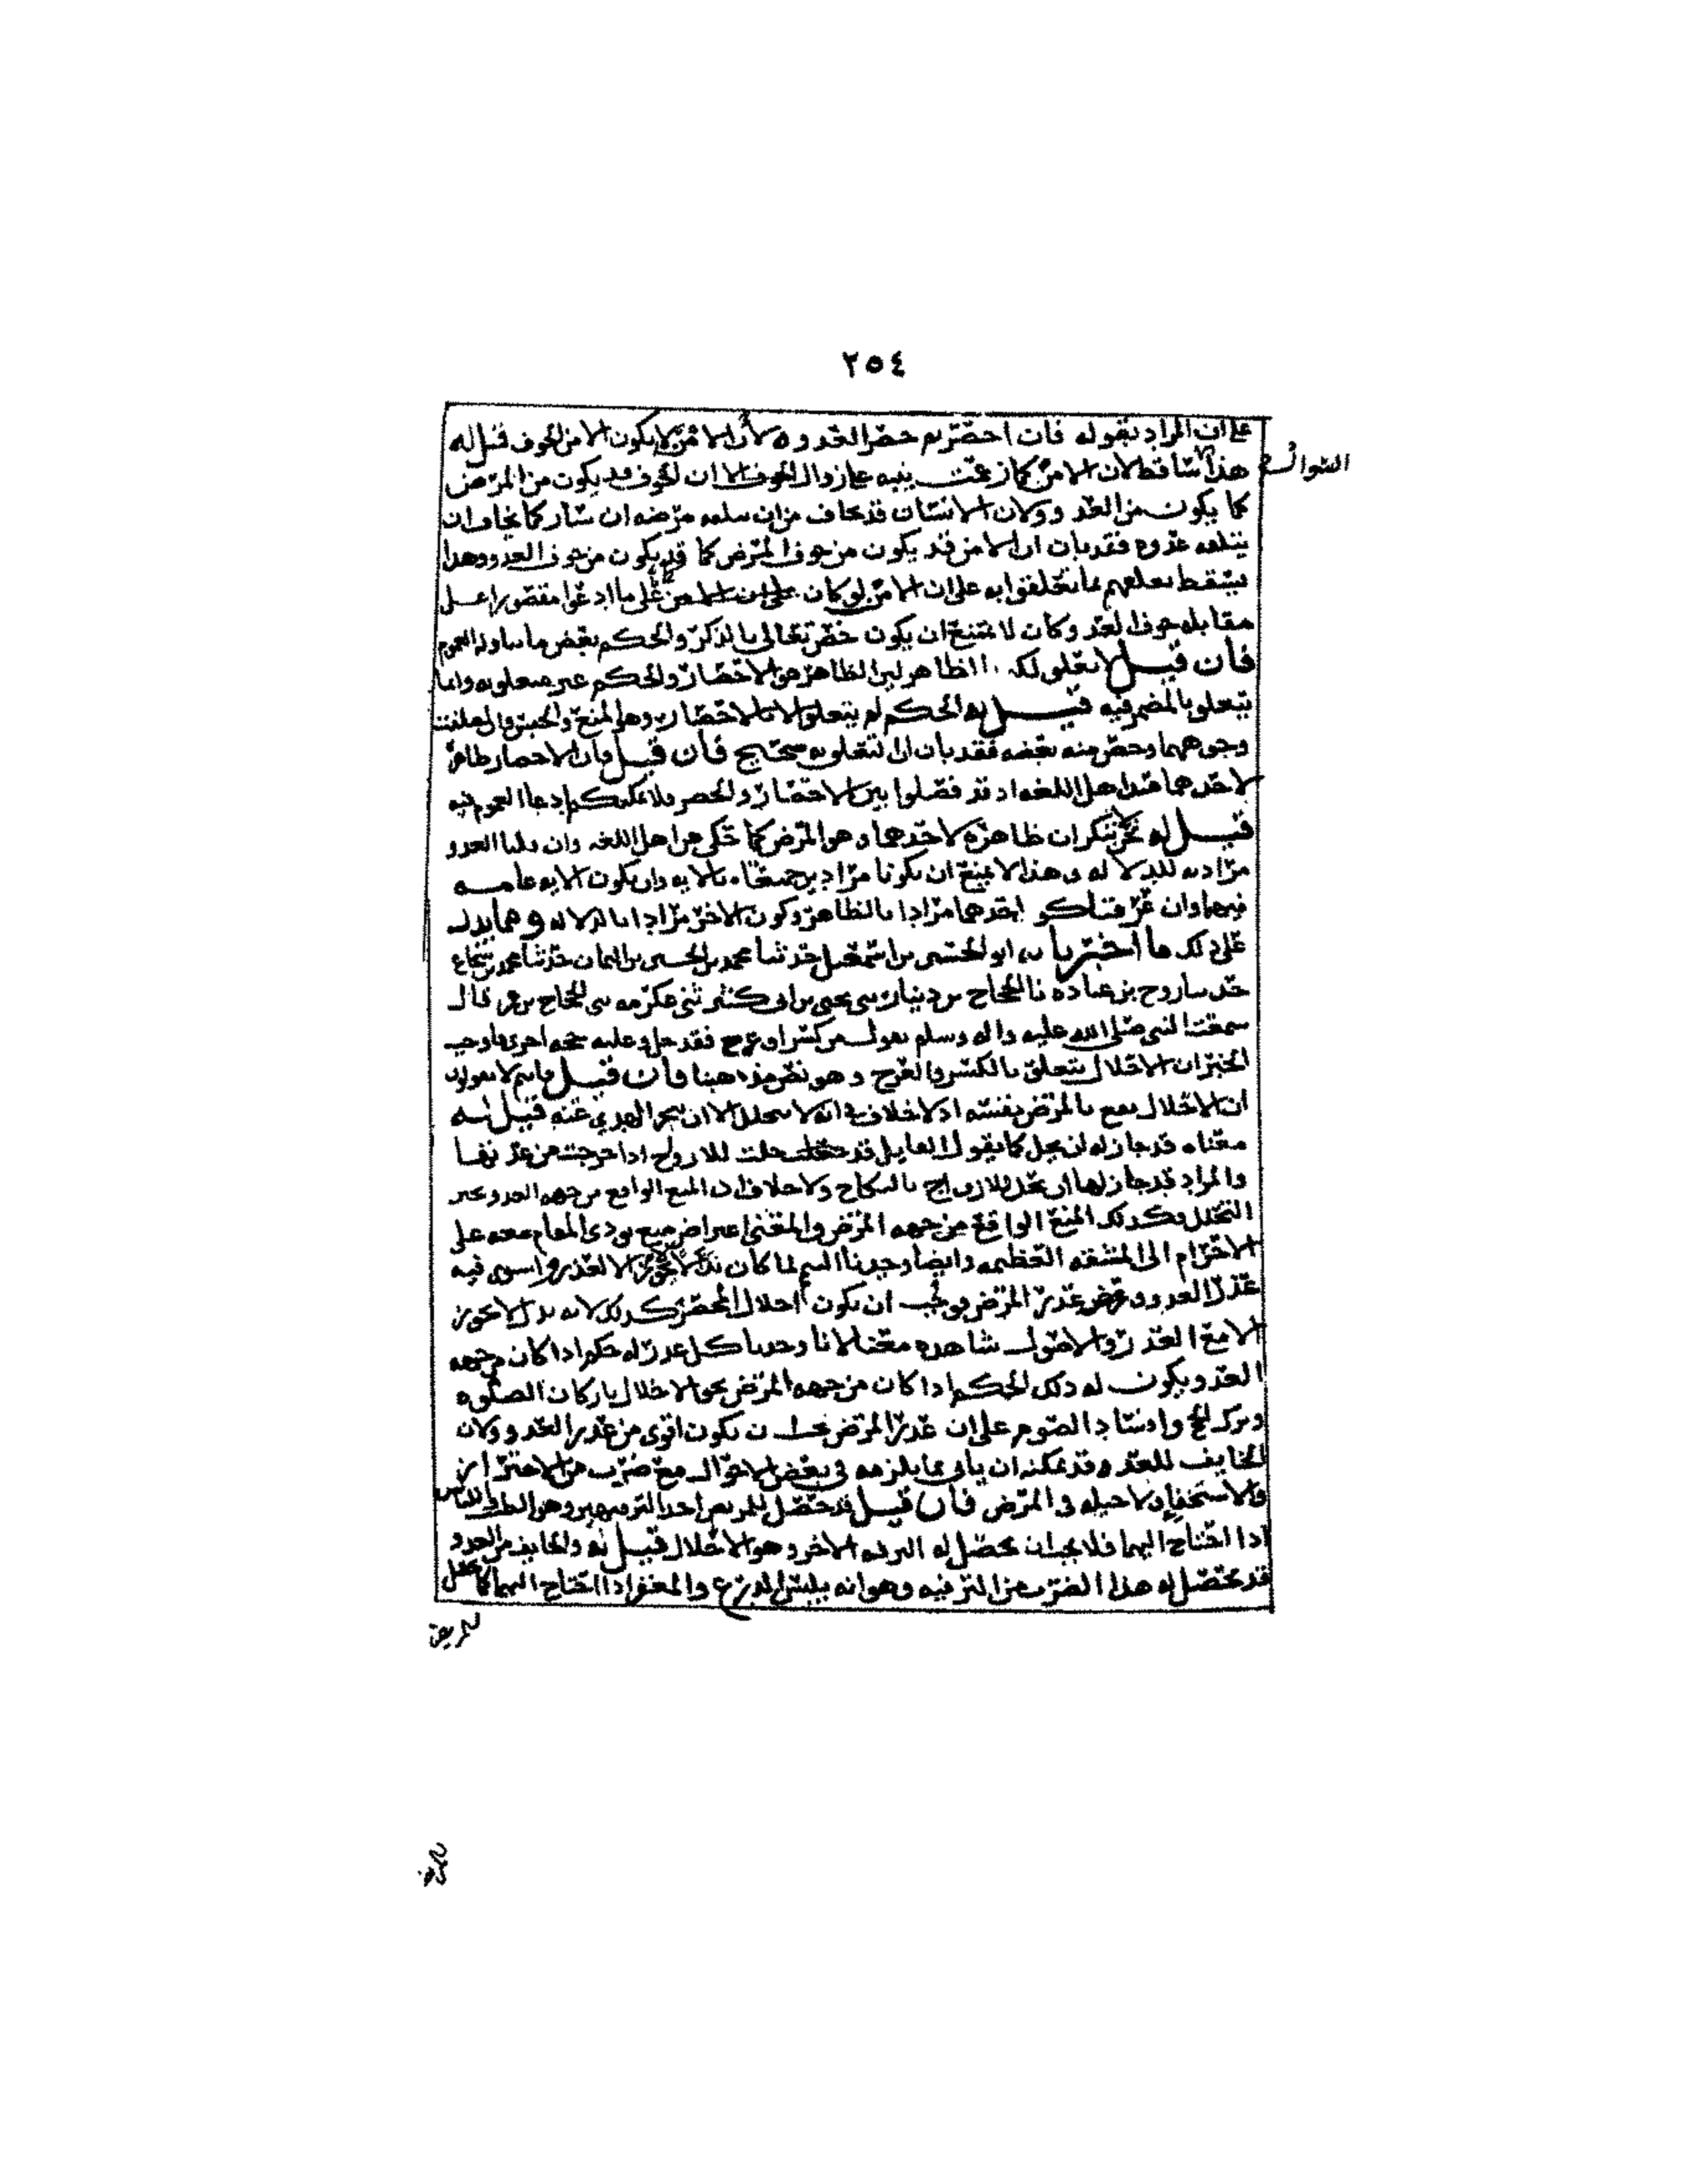 ٢٥٤
على ان المراد بقوله فان احصرتم حصر العدو لان الامن لا يكون الا من الخوف قيل له
السوال
هذا ساقط لان الامن كما زعمت ينبه على زوال الخوف الا ان الخوف قد يكون من المرض
كما يكون من العدو ولان الانسان قد يخاف من ان مرضه ان سار كما يخاف ان
عدوه فقد بان ان الامن قد يكون من خوف المرض كما قد يكون من خوف العدو وهذا
يسقط تعلقهم بما تعلقوا به على ان الامن لو كان على ما ادعوا مقصورا على
مقابله خوف العدو كان لا يمتنع ان يكون خص تعالى بالذكر والحكم بعض ما تناوله العموم
فان قيل لا تعلق لكم الظاهر لان الظاهر هو الاحصار والحكم غير متعلق به وانما
يتعلق بالمضمر فيه قيل له الحكم لم يتعلق الا بالاحصار وهو المنع والحبس وان اختلفت
وجوههما وخص منه بعضه فقد بان ان التعلق به صحيح فان قيل فان الاحصار ظاهر
لاحدهما عند اهل اللغه اذ قد فصلوا بين الاحصار والحصر فلا يمكنكم ادعا العموم فيه
قيل له نحن لا ننكر ان ظاهره لاحدهما وهو المرض كما حكي عن اهل اللغه وان قلنا العدو
مراد به للدلاله وهذا لا يمنع ان يكونا مرادين جميعا بالايه وان يكون الايه عامه
فيهما وان عرفنا كون احدهما مرادا بالظاهر وكون الاخر مرادا بالدلاله ومما يدل
على ذلك ما اخبرنا به ابو الحسين بن اسمعيل حدثنا محمد بن الحسين بن اليمان حدثنا محمد بن شجاع
حدثنا روح بن عباده نا الحجاج بن دينار ثني يحيى بن ابي كثير ثني عكرمه ثني الحجاج بن عمر قال
سمعت النبي صلى الله عليه واله وسلم يقول من كسر او عرج فقد حل وعليه حجه اخرى فاوجب
الخبر ان الاحلال يتعلق بالكسر والعرج وهو نص مذهبنا فان قيل فانتم لا تقولون
ان الاحلال يقع بالمرض بنفسه اذ لا خلاف في انه لا يتحلل الا ان ينحر الهدي عنه قيل له
معناه قد جاز له ان يحل كما يقول القايل قد حلت للازواج اذا خرجت من عدتها
والمراد قد جاز لها ان تحل للازواج بالنكاح ولا خلاف ان المنع الواقع من جهه العدو يجيز
التحلل فكذلك المنع الواقع من جهه المرض والمعنى اعتراض منع يودي المقام معه على
الاحرام الى المشقه العظيمه وايضا وجدنا التيمم لما كان بدلا لا يجوز الا لعذر واستوى فيه
عذر العدو وعذر المرض فوجب ان يكون احلال المحصر كذلك لانه بدل لا يجوز
الا مع العذر والاصول شاهده معنا لانا وجدنا كل عذر له حكم اذا كان من جهه
العدو ويكون له ذلك الحكم اذا كان من جهه المرض نحو الاخلال باركان الصلوه
وترك الحج وافساد الصوم على ان عذر المرض يجب ان يكون اقوى من عذر العدو ولان
الخايف للعدو قد يمكنه ان ياتي بما يلزمه في بعض الاحوال مع ضرب من الاحتراز
والاستخفا ولا حيله في المرض فان قيل قد حصل للمريض احد الترفيهين وهو الطيب واللباس
اذا احتاج اليهما فلا يجب ان يحصل له الترفيه الاخر وهو الاحلال قيل له والخايف من العدو
قد يحصل له هذا الضرب من الترفيه وهو انه يلبس الدرع والمغفر اذا احتاج اليهما كما يحصل
للمريض